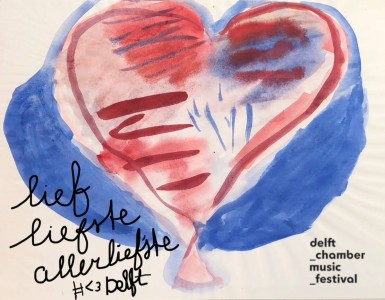 lief
liefste
allerliefste
#<3 Delft
delft
_chamber
music
_festival